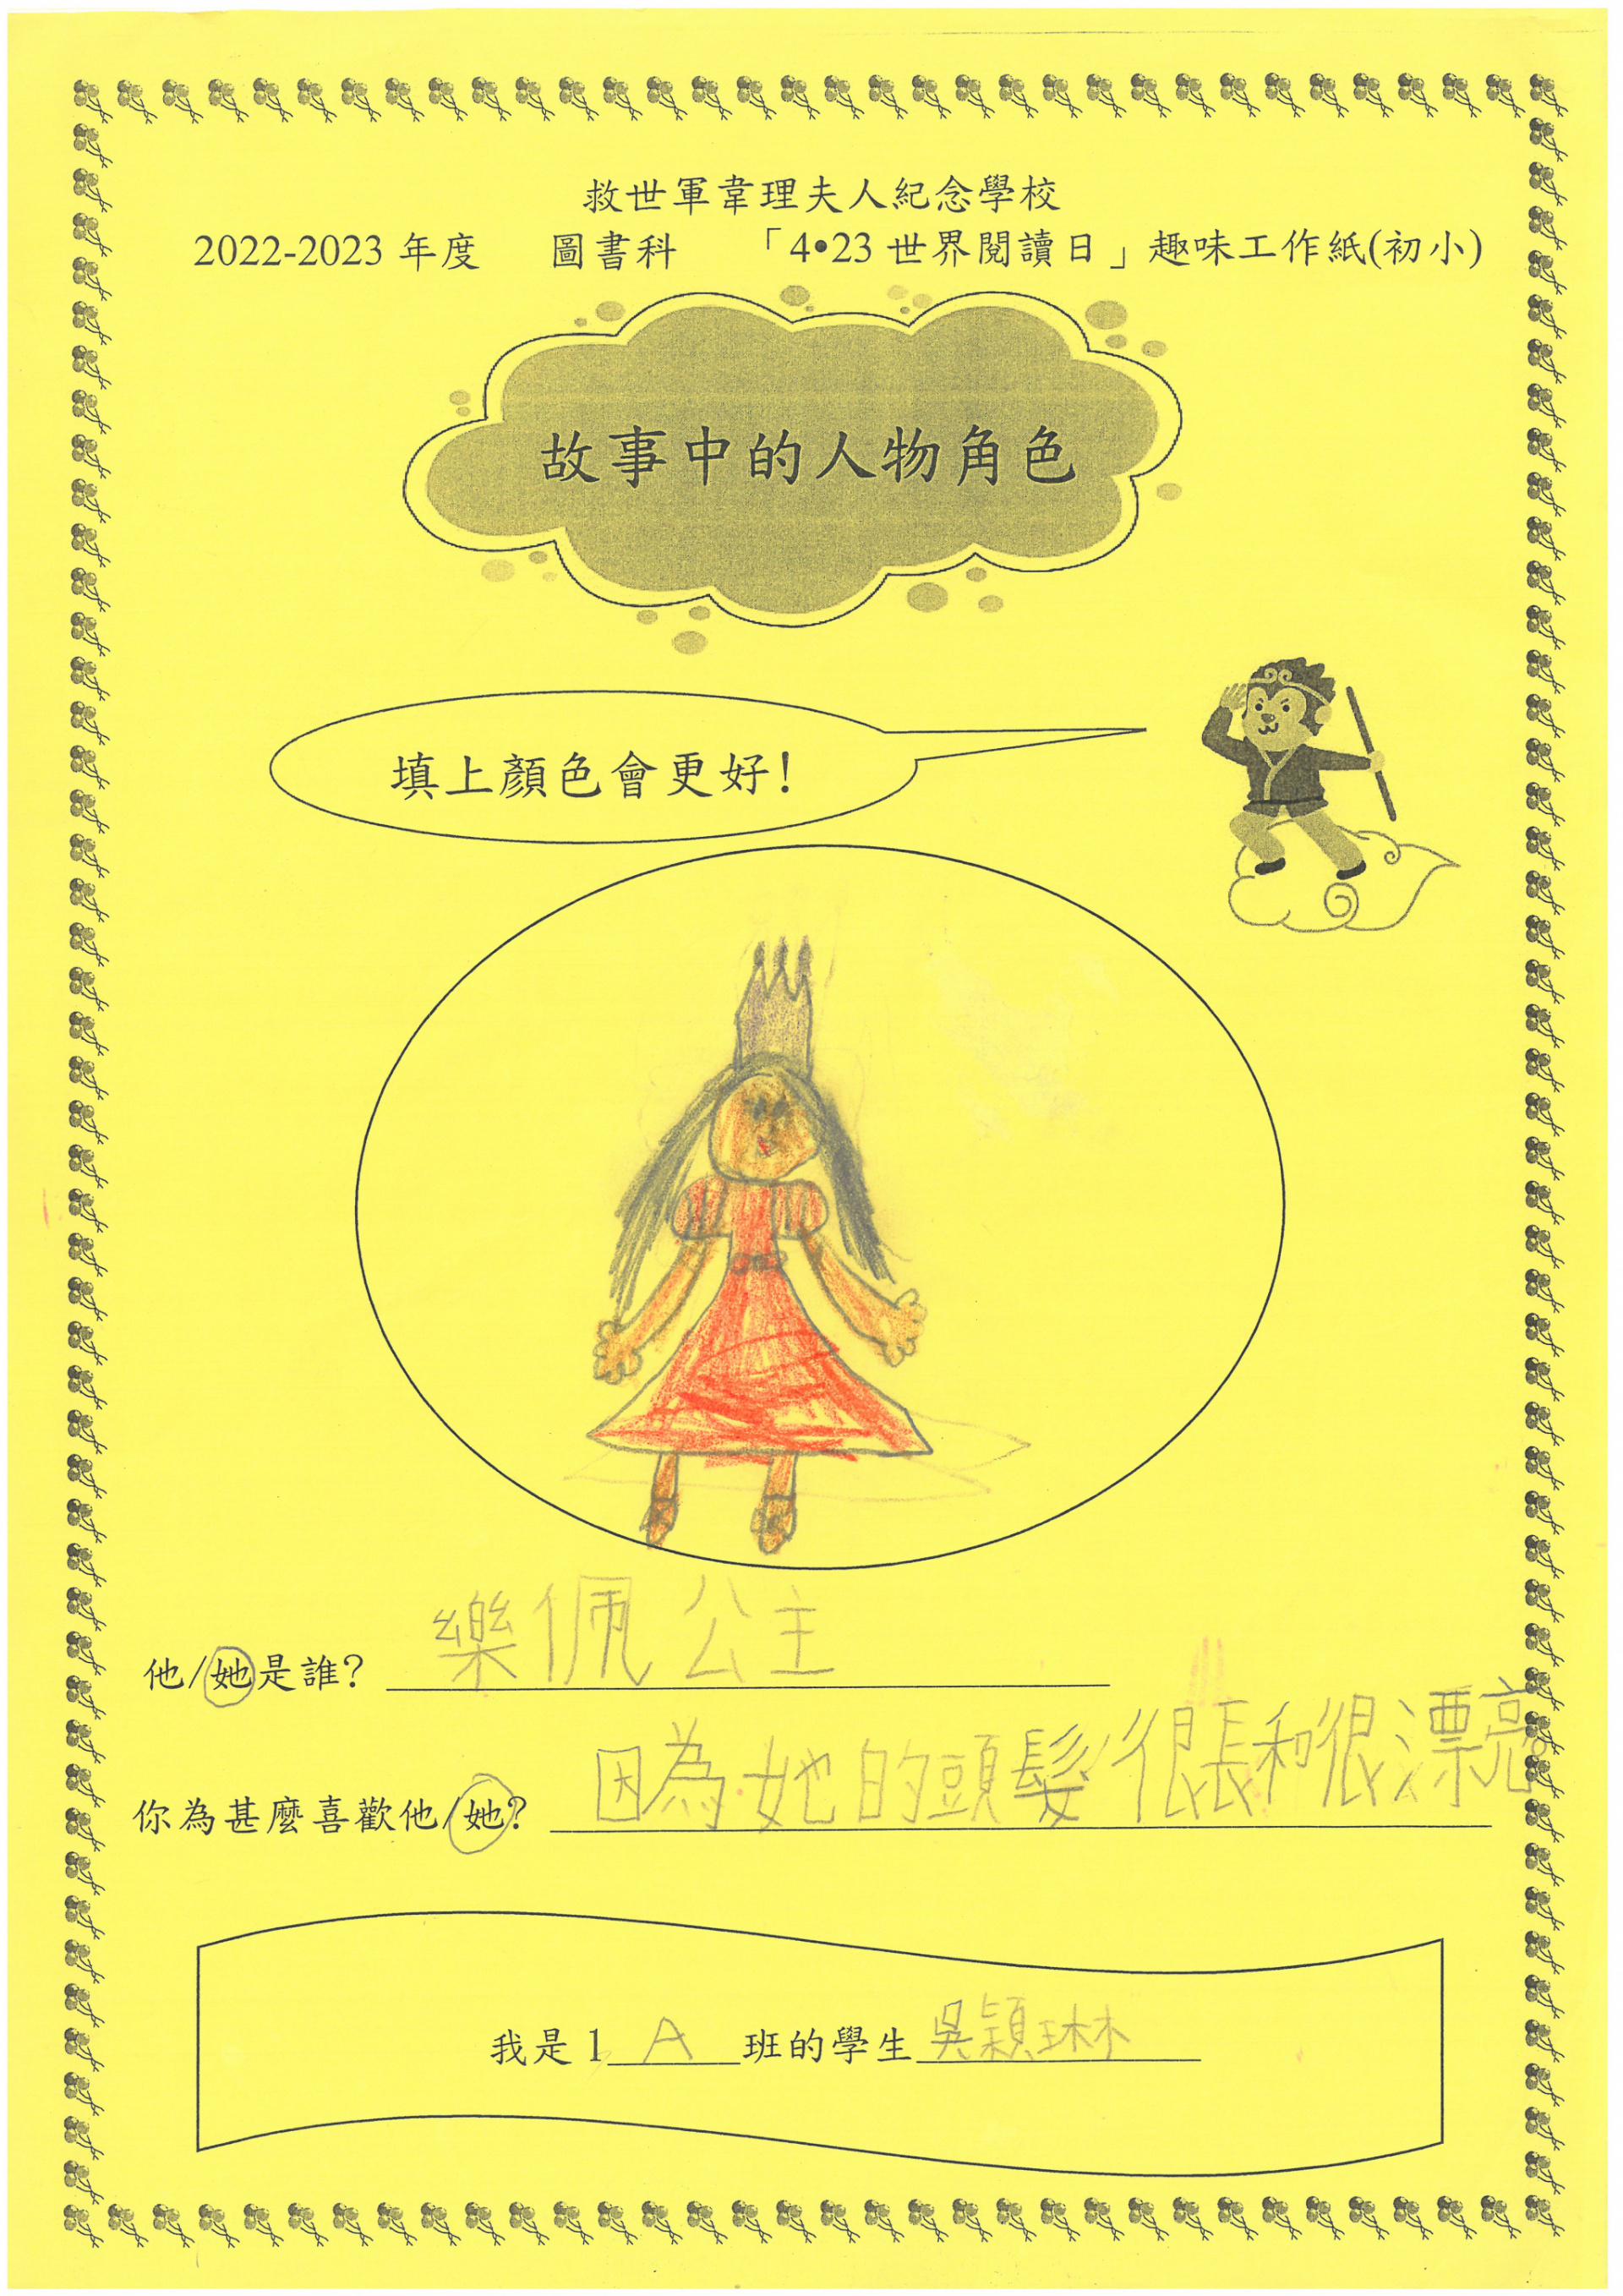 救世軍韋理夫人紀念學校
2022-2023 年度 圖書科 「4•23 世界閱讀日」趣味工作紙(初小)
故事中的人物角色
填上顏色會更好!
他/她是誰? 樂佩公主
你為甚麼喜歡他/她? 因為她的頭髮很長和很漂亮
我是 1 A 班的學生 吳穎琳